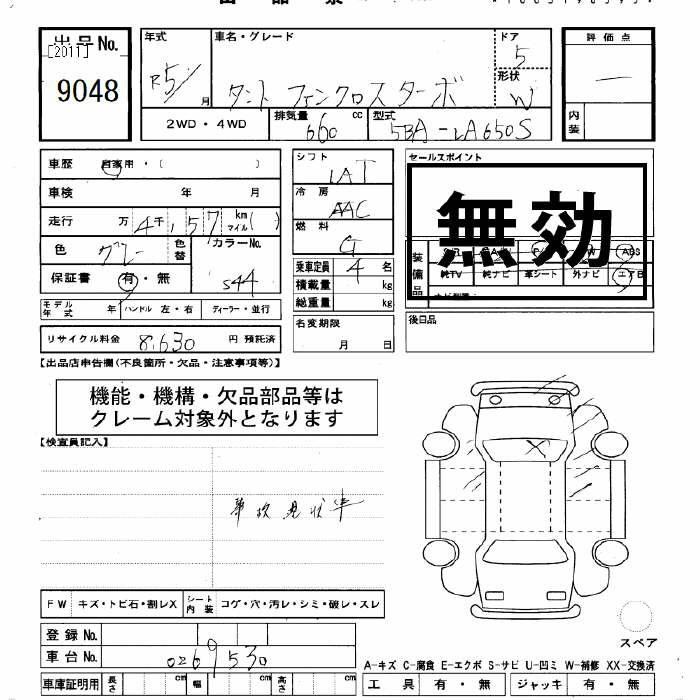 出品No.
[2011]
9048
年式
R5/
月
車名・グレード
タント ファンクロスターボ
ドア
5
形状
W
2WD・4WD
排気量
660
cc
型式
5BA-LA650S
評価点
―
内装
車歴
自家用・( )
車検 年 月
走行 万 4千,157 km マイル( )
色
グレー
色替
カラーNo.
S44
保証書 有・無
モデル年式 年 ハンドル 左・右 ディーラー・並行
リサイクル料金 8,630 円 預託済
シフト
IAT
冷房
AAC
燃料
G
乗車定員 4 名
積載量 kg
総重量 kg
名変期限
月 日
セールスポイント
無効
装備品
ABS
純TV 純ナビ 革シート 外ナビ エアB
後日品
【出品店申告欄(不良箇所・欠品・注意事項等)】
機能・機構・欠品部品等は
クレーム対象外となります
【検査員記入】
事故現状車
FW キズ・トビ石・割レX シート内装 コゲ・穴・汚レ・シミ・破レ・スレ
登録No.
車台No. 0269530
車庫証明用 長さ cm 幅 cm 高さ cm
スペア
A-キズ C-腐食 E-エクボ S-サビ U-凹ミ W-補修 XX-交換済
工具 有・無 ジャッキ 有・無